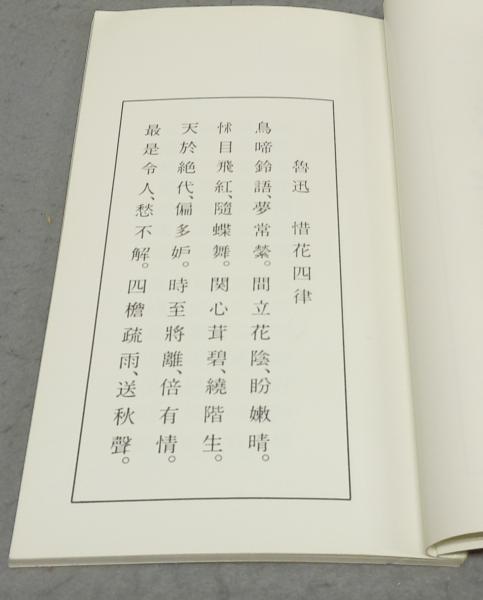 魯迅　惜花四律
鳥啼鈴語、夢常縈。間立花陰、盼嫩晴。
怵目飛紅、隨蝶舞。関心茸碧、繞階生。
天於絶代、偏多妒。時至將離、倍有情。
最是令人、愁不解。四檐疏雨、送秋聲。